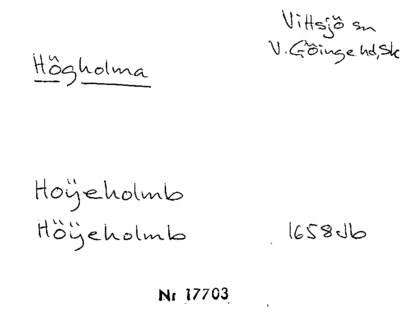 Vittsjö sn
V. Göinge hd, Sk
Högholma
Hoÿeholmb
Höÿeholmb 1658 Jb
Nr 17703